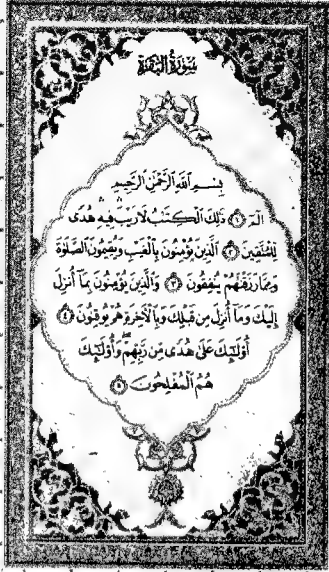 سُورَةُ البَقَرَةِ
بِسْمِ اللَّهِ الرَّحْمَٰنِ الرَّحِيمِ
الٓمٓ ۝١ ذَٰلِكَ الْكِتَٰبُ لَا رَيْبَ ۛ فِيهِ ۛ هُدًى
لِّلْمُتَّقِينَ ۝٢ الَّذِينَ يُؤْمِنُونَ بِالْغَيْبِ وَيُقِيمُونَ الصَّلَوٰةَ
وَمِمَّا رَزَقْنَٰهُمْ يُنفِقُونَ ۝٣ وَالَّذِينَ يُؤْمِنُونَ بِمَا أُنزِلَ
إِلَيْكَ وَمَا أُنزِلَ مِن قَبْلِكَ وَبِالْآخِرَةِ هُمْ يُوقِنُونَ ۝٤
أُولَٰئِكَ عَلَىٰ هُدًى مِّن رَّبِّهِمْ ۖ وَأُولَٰئِكَ
هُمُ الْمُفْلِحُونَ ۝٥